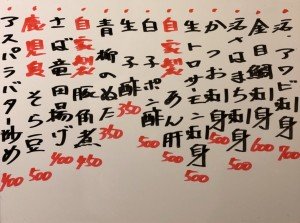 活アワビ刺身 700
金目鯛刺身 600
活はまち刺身 500
かつお刺身
生トロサーモン刺身 500
自家製 あん肝 500
白子ポン酢 500
生子酢 350
青柳のぬた 350
自家製 豚角煮 450
さば竜田揚げ 400
鹿児島 そら豆 500
アスパラバター炒め 400